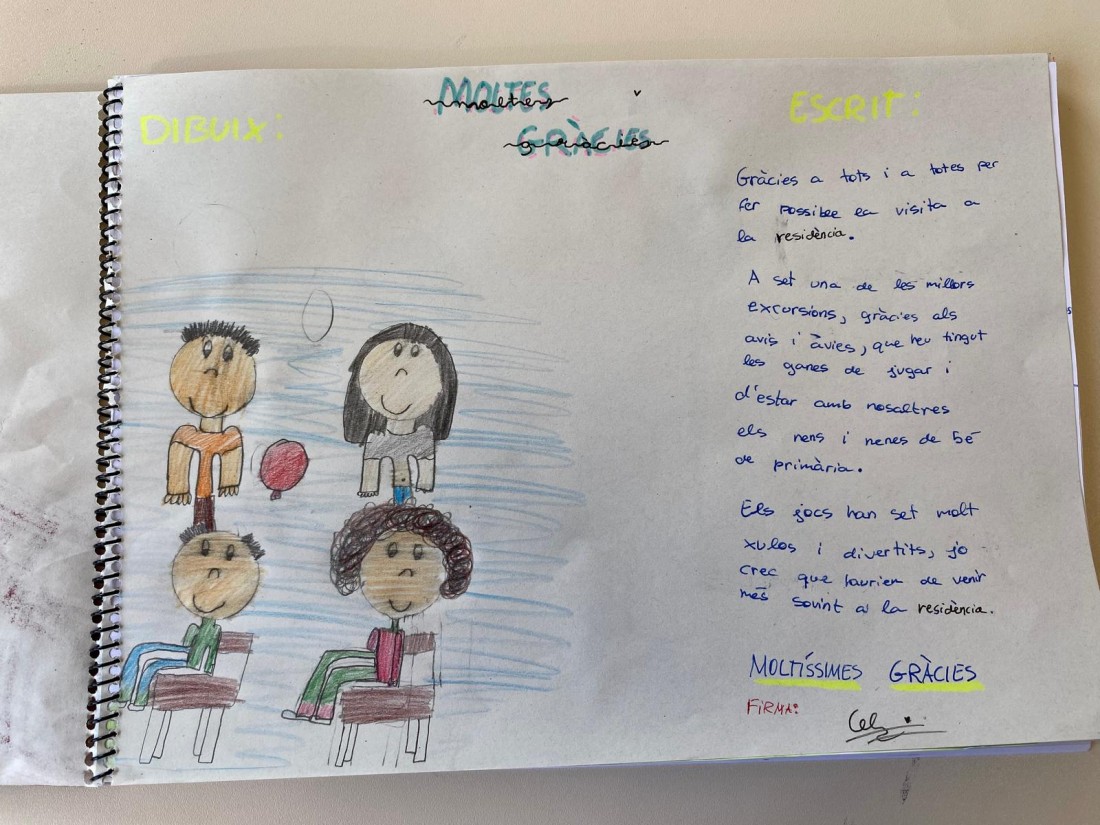 DIBUIX:
MOLTES
moltes
GRÀCIES
gràcies
ESCRIT:
Gràcies a tots i a totes per
fer possible la visita a
la residència.
A set una de les millors
excursions, gràcies als
avis i àvies, que heu tingut
les ganes de jugar i
d'estar amb nosaltres
els nens i nenes de 5é
de primària.
Els jocs han set molt
xulos i divertits, jo
crec que hauriem de venir
més sovint a la residència.
MOLTÍSSIMES GRÀCIES
FIRMA: